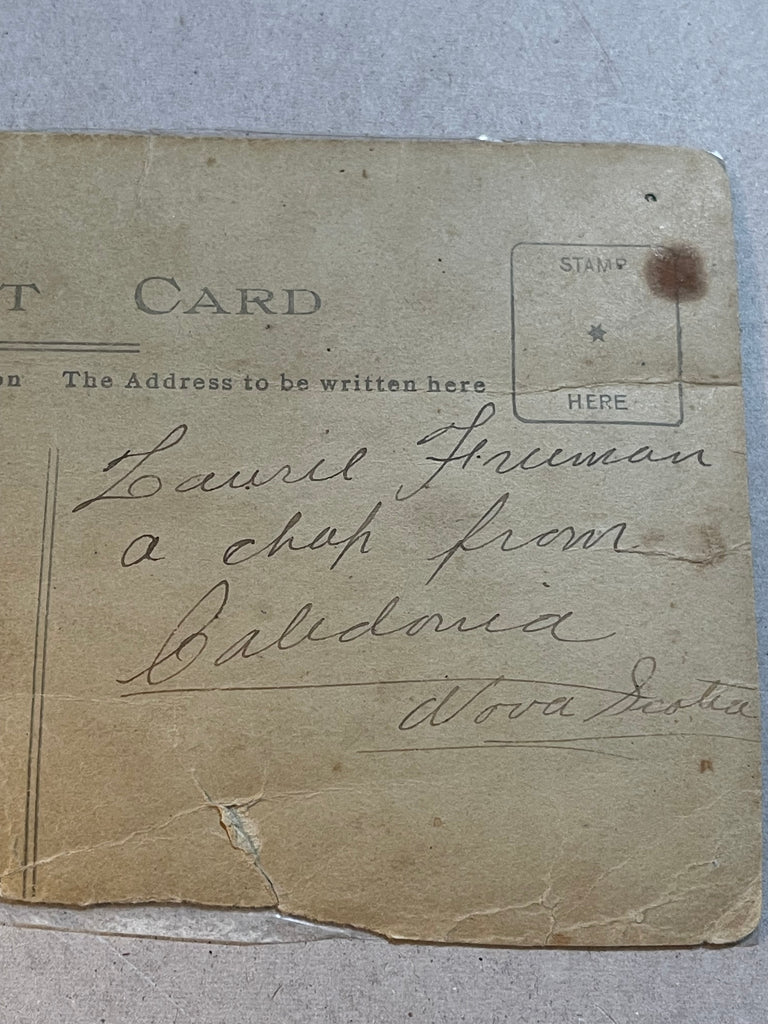 T CARD
STAMP
HERE
on The Address to be written here
Laurie Freeman
a chap from
Caledonia
Nova Scotia